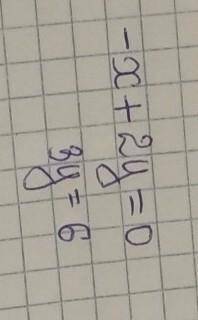 -x + 2y = 0
3y = 6